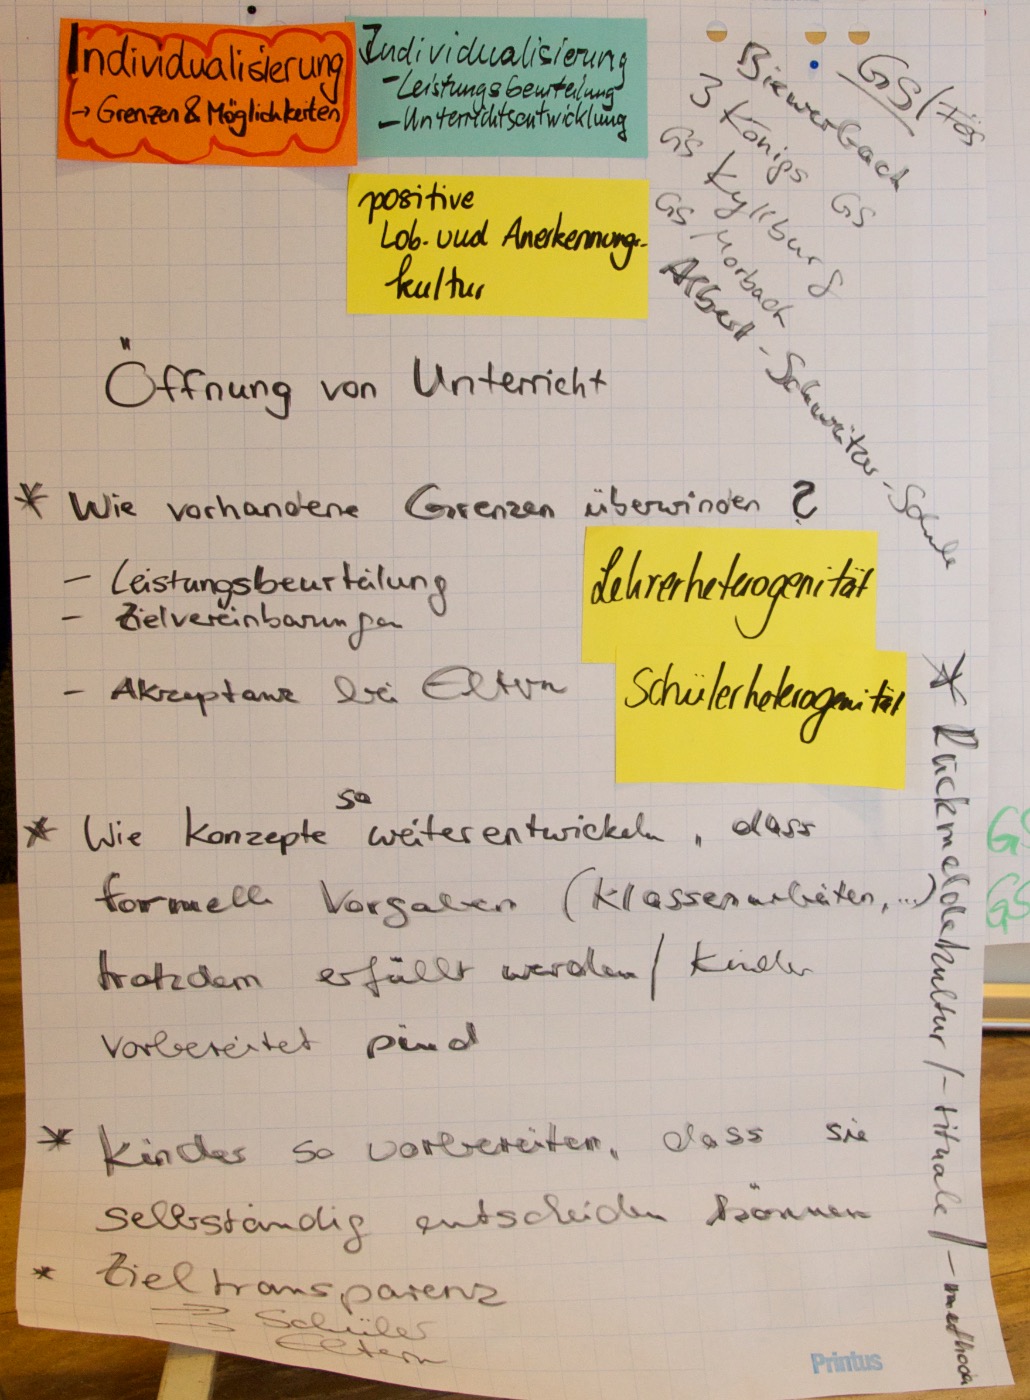 Individualisierung
→ Grenzen & Möglichkeiten
Individualisierung
- Leistungsbeurteilung
- Unterrichtsentwicklung
positive
Lob- und Anerkennungs-
kultur
GS/
Biewerbach
3 Königs GS
GS Kyllburg
GS Morbach
Albert-Schweitzer-Schule
Öffnung von Unterricht
* Wie vorhandene Grenzen überwinden ?
- Leistungsbeurteilung
- Zielvereinbarungen
- Akzeptanz bei Eltern
Lehrerheterogenität
Schülerheterogenität
* Wie Konzepte so weiterentwickeln, dass
formelle Vorgaben (Klassenarbeiten,...)
trotzdem erfüllt werden / Kinder
vorbereitet sind
* Kinder so vorbereiten, dass sie
selbständig entscheiden können
* Zieltransparenz
Schüler
Eltern
* Rückmeldekultur /-rituale /-method
GS
GS
Printus